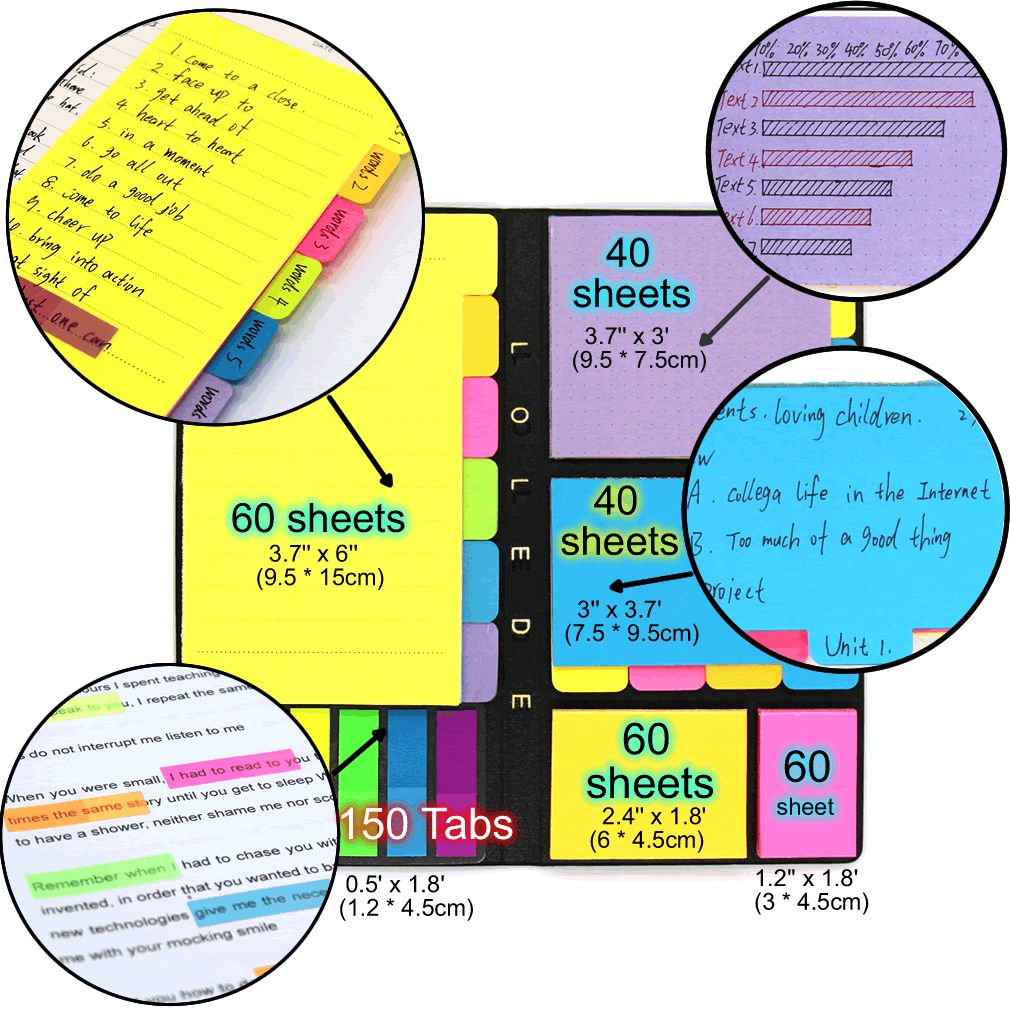 DATE
1. Come to a close.
2. face up to
3. get ahead of
4. heart to heart
5. in a moment
6. go all out
7. do a good job
8. come to life
9. cheer up
10. bring into action
at sight of
one can
words 2
words 3
words 4
words 5
words
10% 20% 30% 40% 50% 60% 70%
xt1.
Text 2
Text 3.
Text 4.
Text 5.
ext 6.
7
40
sheets
3.7" x 3'
(9.5 * 7.5cm)
LOLLEDE
60 sheets
3.7" x 6"
(9.5 * 15cm)
40
sheets
3" x 3.7'
(7.5 * 9.5cm)
ents. loving children. 2,
w
A. collega life in the Internet
B. Too much of a good thing
project
Unit 1.
ours I spent teaching
eak to you, I repeat the same
do not interrupt me listen to me
When you were small, I had to read to you
times the same story until you get to sleep
to have a shower, neither shame me nor sco
Remember when I had to chase you wi
invented, in order that you wanted to b
new technologies give me the nece
me with your mocking smile
you how to d
150 Tabs
0.5' x 1.8'
(1.2 * 4.5cm)
60
sheets
2.4" x 1.8'
(6 * 4.5cm)
60
sheet
1.2" x 1.8'
(3 * 4.5cm)